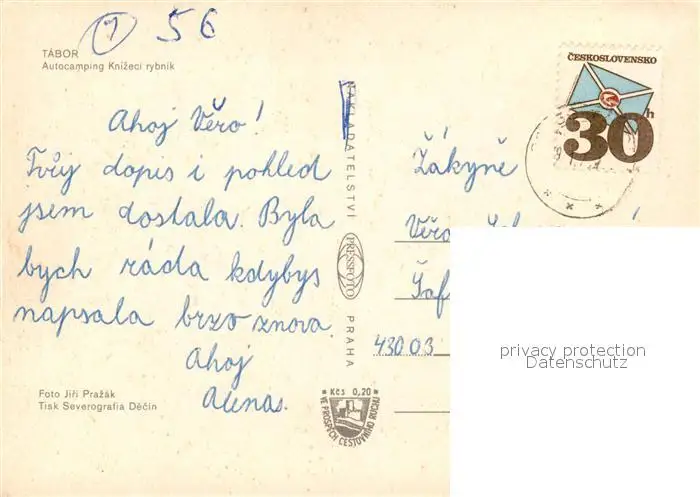 7 56
TÁBOR
Autocamping Knížecí rybník
ČESKOSLOVENSKO
30h
Ahoj Věro!
Tvůj dopis i pohled
jsem dostala. Byla
bych ráda kdybys
napsala brzo znova.
Ahoj
Alenas.
NAKLADATELSTVÍ PRESSFOTO PRAHA
Žákyně
Věra
43003
privacy protection
Datenschutz
Foto Jiří Pražák
Tisk Severografia Děčín
Kčs 0,20
VE PROSPĚCH CESTOVNÍHO RUCHU